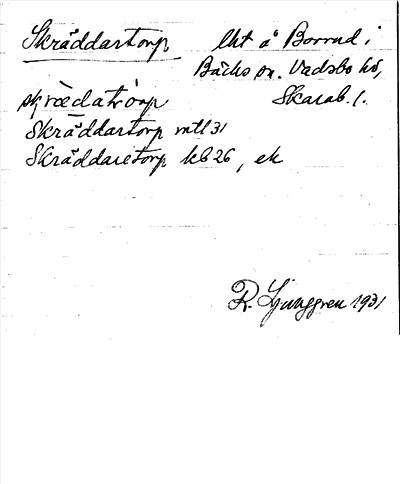 Skräddartorp lht å Borrud i
Bäcks sn. Vadsbo hd,
skrædatòrp Skarab. l.
Skräddartorp mtl 31
Skräddaretorp kb 26, ek
R. Ljunggren 1931